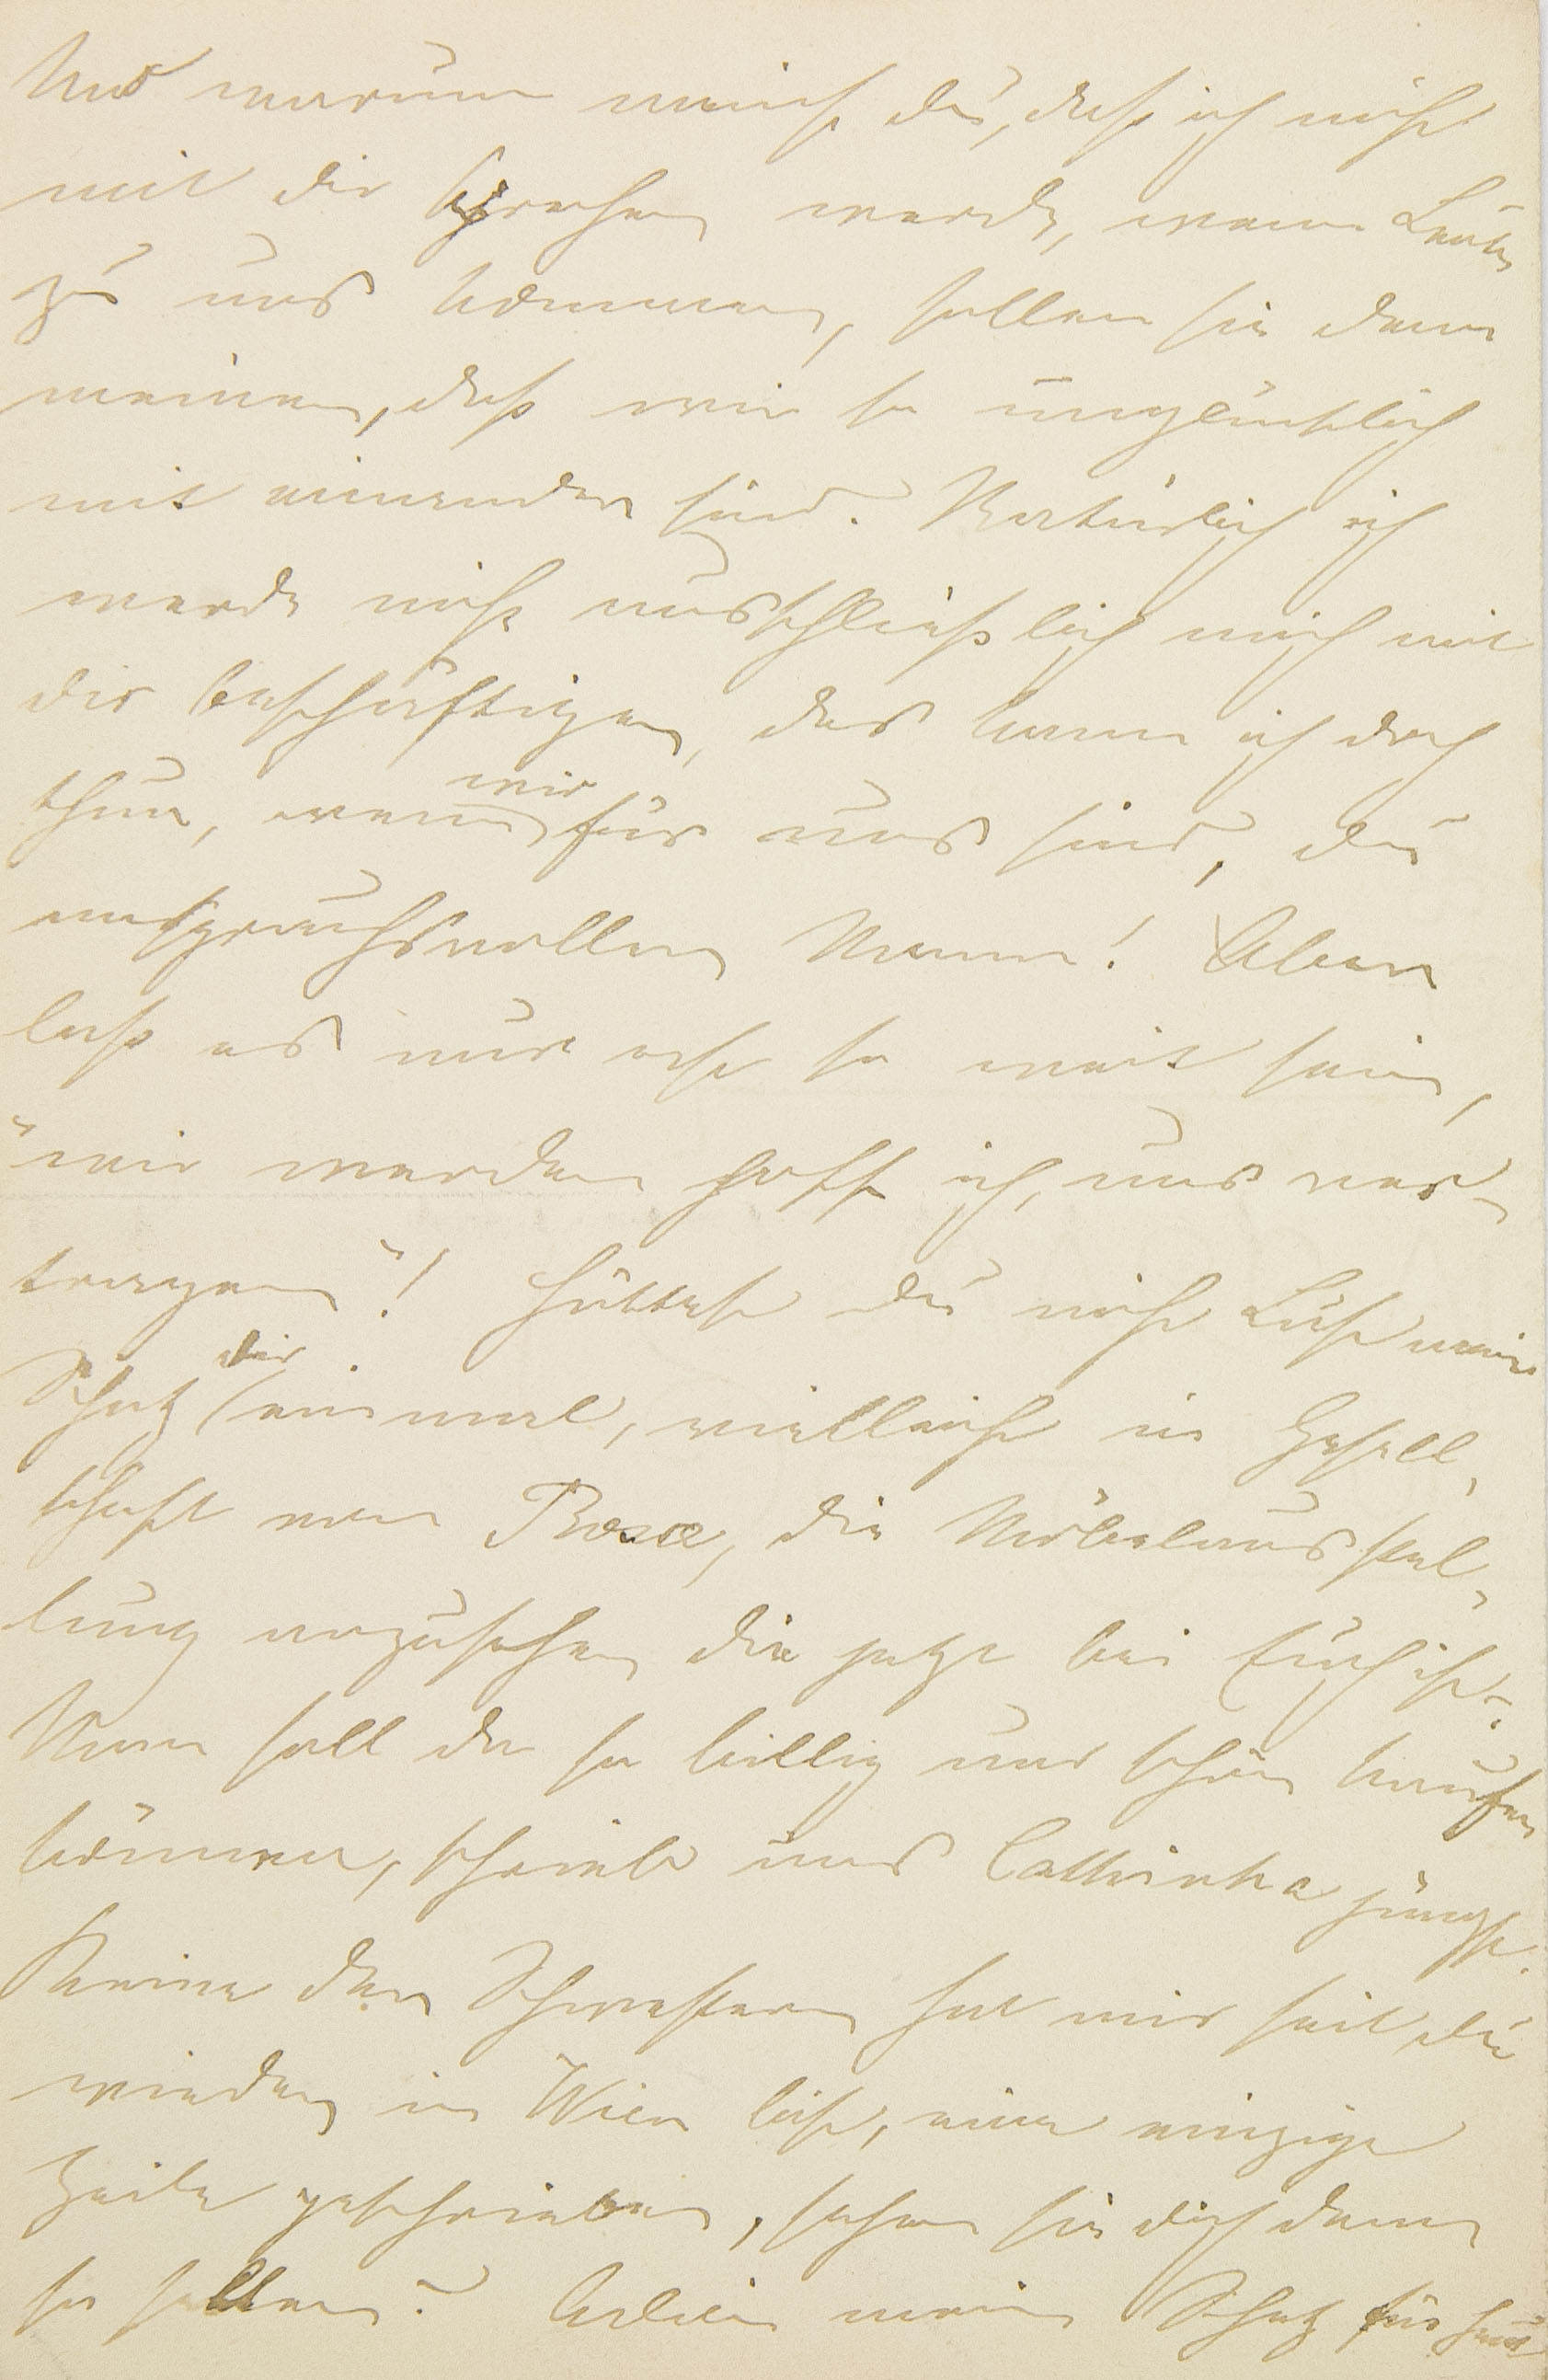 Und warum meinst du, daß ich nicht
mit dir sprechen werde, wenn Leute
zu uns kommen, sollen sie denn
meinen, daß wir so unglücklich
mit einander sind? Natürlich ich
werde nicht ausschließlich mich mit
dir beschäftigen, das kann ich doch
thun, wenn wir für uns sind, du
anspruchsvoller Mann! Aber
laß es nur erst so weit sein,
"wir werden hoff ich, uns ver-
tragen"! Hättest du nicht Lust mein
Schatz dir einmal, vielleicht in Gesell-
schaft von Rosa, die Möbelausstel-
lung anzusehen die jetzt bei Euch ist?
Man soll da so billig und schön kaufen
können, schrieb uns Cathinka jüngst.
Keine der Schwestern hat mir seit du
wieder in Wien bist, eine einzige
Zeile geschrieben, sehen sie dich denn
so selten? Adieu mein Schatz für heut